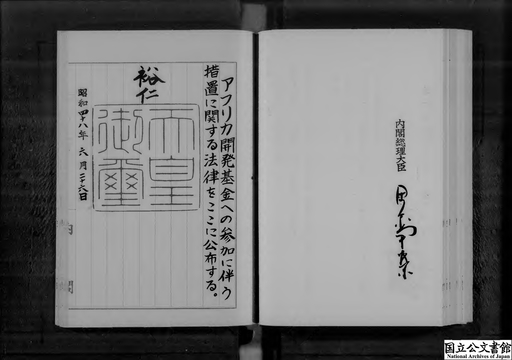 アフリカ開発基金への参加に伴う
措置に関する法律をここに公布する。
裕仁
天皇
御璽
昭和四十八年六月二十六日
内閣総理大臣
田中角榮
国立公文書館
National Archives of Japan